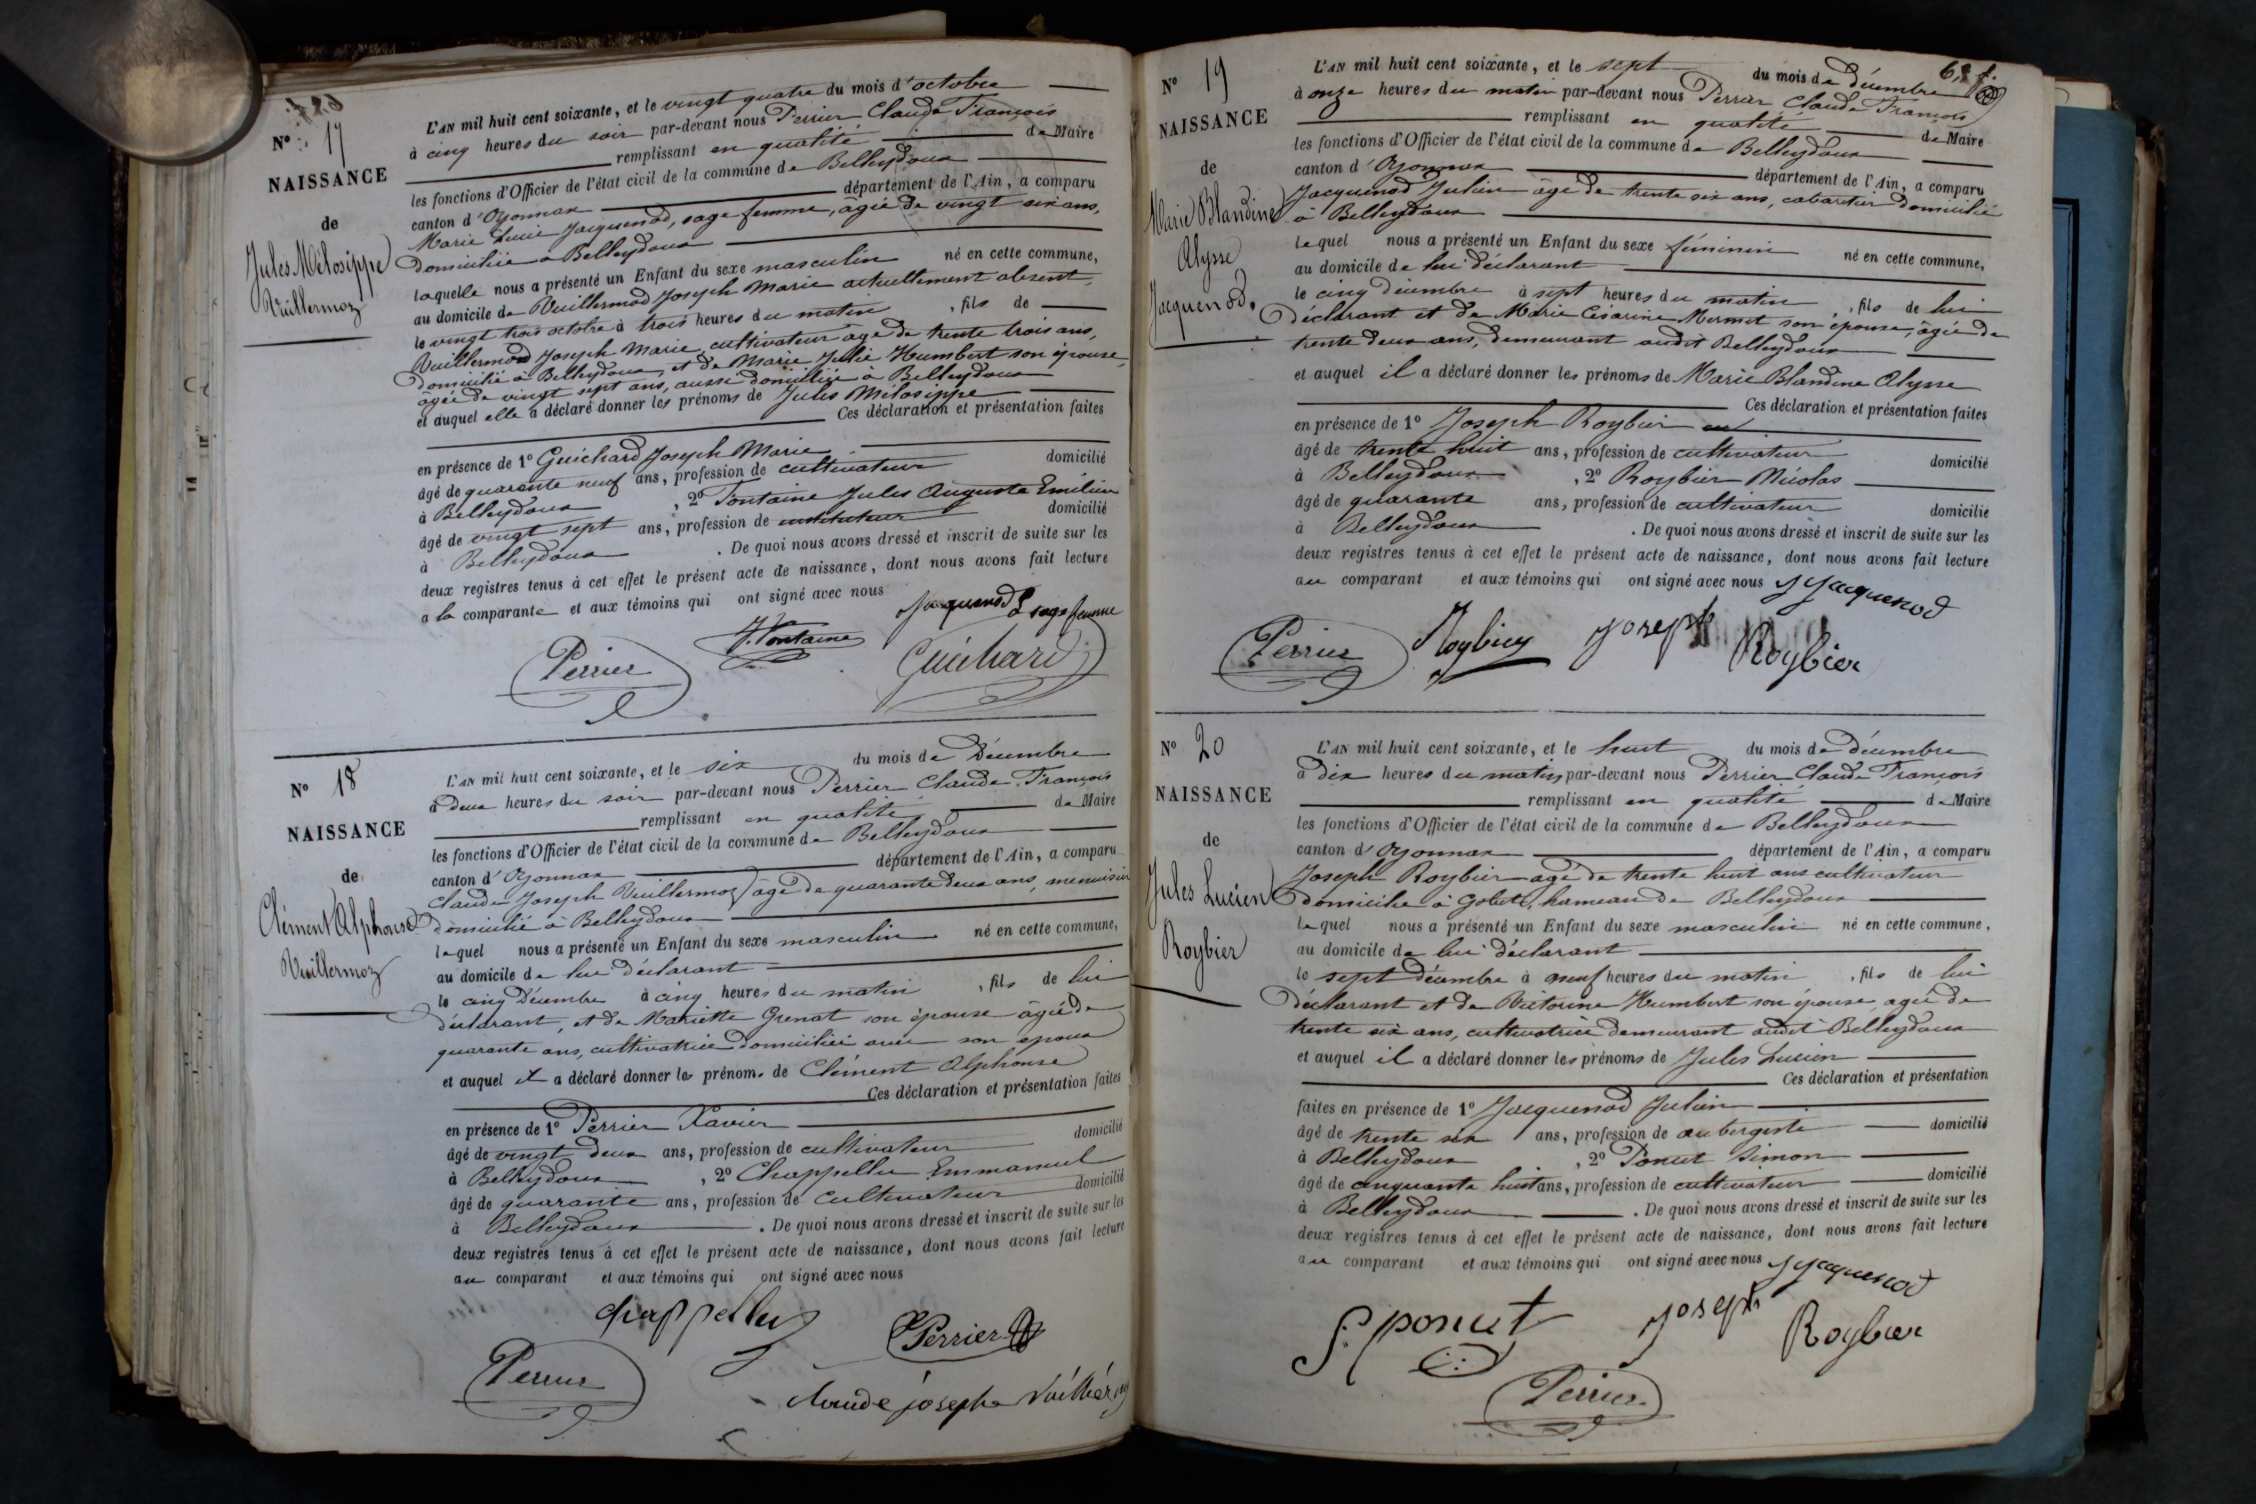 N° 17
NAISSANCE
de
Jules Mélosippe
Vuillermoz
L'AN mil huit cent soixante, et le vingt quatre du mois d'octobre
à cinq heures du soir par-devant nous Perrier Claude François
remplissant en qualité de Maire
les fonctions d'Officier de l'état civil de la commune de Belleydoux
canton d'Oyonnax département de l'Ain, a comparu
Marie Lucie Jacquenod, sage femme, âgée de vingt six ans,
domiciliée à Belleydoux
laquelle nous a présenté un Enfant du sexe masculin né en cette commune,
au domicile de Vuillermod Joseph Marie actuellement absent,
le vingt trois octobre à trois heures du matin, fils de
Vuillermod Joseph Marie, cultivateur âgé de trente trois ans,
domicilié à Belleydoux, et de Marie Julie Humbert son épouse,
âgée de vingt sept ans, aussi domiciliée à Belleydoux
et auquel elle a déclaré donner les prénoms de Jules Mélosippe
Ces déclaration et présentation faites
en présence de 1° Guichard Joseph Marie
âgé de quarante neuf ans, profession de cultivateur domicilié
à Belleydoux, 2° Fontaine Jules Auguste Emilien
âgé de vingt sept ans, profession de instituteur domicilié
à Belleydoux. De quoi nous avons dressé et inscrit de suite sur les
deux registres tenus à cet effet le présent acte de naissance, dont nous avons fait lecture
a la comparante et aux témoins qui ont signé avec nous
Jacquenod L sage femme
J. Fontaine
Perrier Guichard
N° 18
NAISSANCE
de
Clément Alphonse
Vuillermoz
L'AN mil huit cent soixante, et le six du mois de Décembre
à deux heures du soir par-devant nous Perrier Claude François
remplissant en qualité de Maire
les fonctions d'Officier de l'état civil de la commune de Belleydoux
canton d'Oyonnax département de l'Ain, a comparu
Claude Joseph Vuillermoz âgé de quarante deux ans, menuisier
domicilié à Belleydoux
lequel nous a présenté un Enfant du sexe masculin né en cette commune,
au domicile de lui déclarant
le cinq Décembre à cinq heures du matin, fils de lui
déclarant, et de Mariette Grenat son épouse âgée de
quarante ans, cultivatrice domiciliée avec son époux
et auquel il a déclaré donner les prénoms de Clément Alphonse
Ces déclaration et présentation faites
en présence de 1° Perrier Xavier
âgé de vingt deux ans, profession de cultivateur domicilié
à Belleydoux, 2° Chappellu Emmanuel
âgé de quarante ans, profession de cultivateur domicilié
à Belleydoux. De quoi nous avons dressé et inscrit de suite sur les
deux registres tenus à cet effet le présent acte de naissance, dont nous avons fait lecture
au comparant et aux témoins qui ont signé avec nous
chappellu
X Perrier
Perrier
claude joseph
N° 19
NAISSANCE
de
Marie Blandine
Alysse
Jacquenod.
L'AN mil huit cent soixante, et le sept du mois de décembre
à onze heures du matin par-devant nous Perrier Claude François
remplissant en qualité de Maire
les fonctions d'Officier de l'état civil de la commune de Belleydoux
canton d'Oyonnax département de l'Ain, a comparu
Jacquenod Julien âgé de trente six ans, cabaretier domicilié
à Belleydoux
lequel nous a présenté un Enfant du sexe féminin né en cette commune,
au domicile de lui déclarant
le cinq décembre à sept heures du matin, fils de lui
déclarant et de Marie Césarine Mermet son épouse, âgée de
trente deux ans, demeurant audit Belleydoux
et auquel il a déclaré donner les prénoms de Marie Blandine Alysse
Ces déclaration et présentation faites
en présence de 1° Joseph Roybier
âgé de trente huit ans, profession de cultivateur domicilié
à Belleydoux, 2° Roybier Nicolas
âgé de quarante ans, profession de cultivateur domicilié
à Belleydoux. De quoi nous avons dressé et inscrit de suite sur les
deux registres tenus à cet effet le présent acte de naissance, dont nous avons fait lecture
au comparant et aux témoins qui ont signé avec nous J Jacquenod
Perrier Roybier joseph Roybier
N° 20
NAISSANCE
de
Jules Lucien
Roybier
L'AN mil huit cent soixante, et le huit du mois de décembre
à dix heures du matin par-devant nous Perrier Claude François
remplissant en qualité de Maire
les fonctions d'Officier de l'état civil de la commune de Belleydoux
canton d'Oyonnax département de l'Ain, a comparu
Joseph Roybier âgé de trente huit ans cultivateur
domicilié à Gobet, hameau de Belleydoux
lequel nous a présenté un Enfant du sexe masculin né en cette commune,
au domicile de lui déclarant
le sept décembre à neuf heures du matin, fils de lui
déclarant et de Victorine Humbert son épouse, agée de
trente six ans, cultivatrice demeurant audit Belleydoux
et auquel il a déclaré donner les prénoms de Jules Lucien
Ces déclaration et présentation
faites en présence de 1° Jacquenod Julien
âgé de trente six ans, profession de aubergiste domicilié
à Belleydoux, 2° Poncet Simon
âgé de cinquante huit ans, profession de cultivateur domicilié
à Belleydoux. De quoi nous avons dressé et inscrit de suite sur les
deux registres tenus à cet effet le présent acte de naissance, dont nous avons fait lecture
au comparant et aux témoins qui ont signé avec nous J Jacquenod
S. poncet joseph Roybier
Perrier